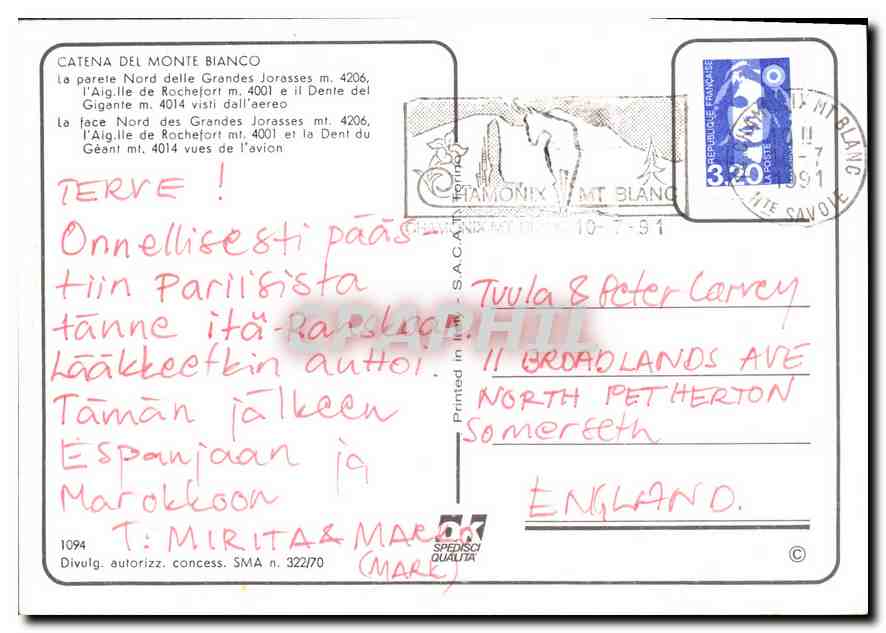 CATENA DEL MONTE BIANCO
La parete Nord delle Grandes Jorasses m. 4206,
l'Aig.lle de Rochefort m. 4001 e il Dente del
Gigante m. 4014 visti dall'aereo
La face Nord des Grandes Jorasses mt. 4206,
l'Aig.lle de Rochefort mt. 4001 et la Dent du
Géant mt. 4014 vues de l'avion
TERVE !
Onnellisesti pääs-
tiin Pariisista
tänne itä-Ranskaan.
Lääkkeetkin auttoi.
Tämän jälkeen
Espanjaan ja
Marokkoon
T: MIRITA & MARKO
(MARK)
1094
Divulg. autorizz. concess. SMA n. 322/70
Printed in Italy - S.A.C.A.T. Torino
OK
SPEDISCI
QUALITÀ
CHAMONIX MT BLANC
10-7-91
RÉPUBLIQUE FRANÇAISE
3,20
LA POSTE
MT BLANC
-7
1991
HTE SAVOIE
Tuula & Peter Carvey
11 BROADLANDS AVE
NORTH PETHERTON
Somerseth
ENGLAND.
©
DELPHIL